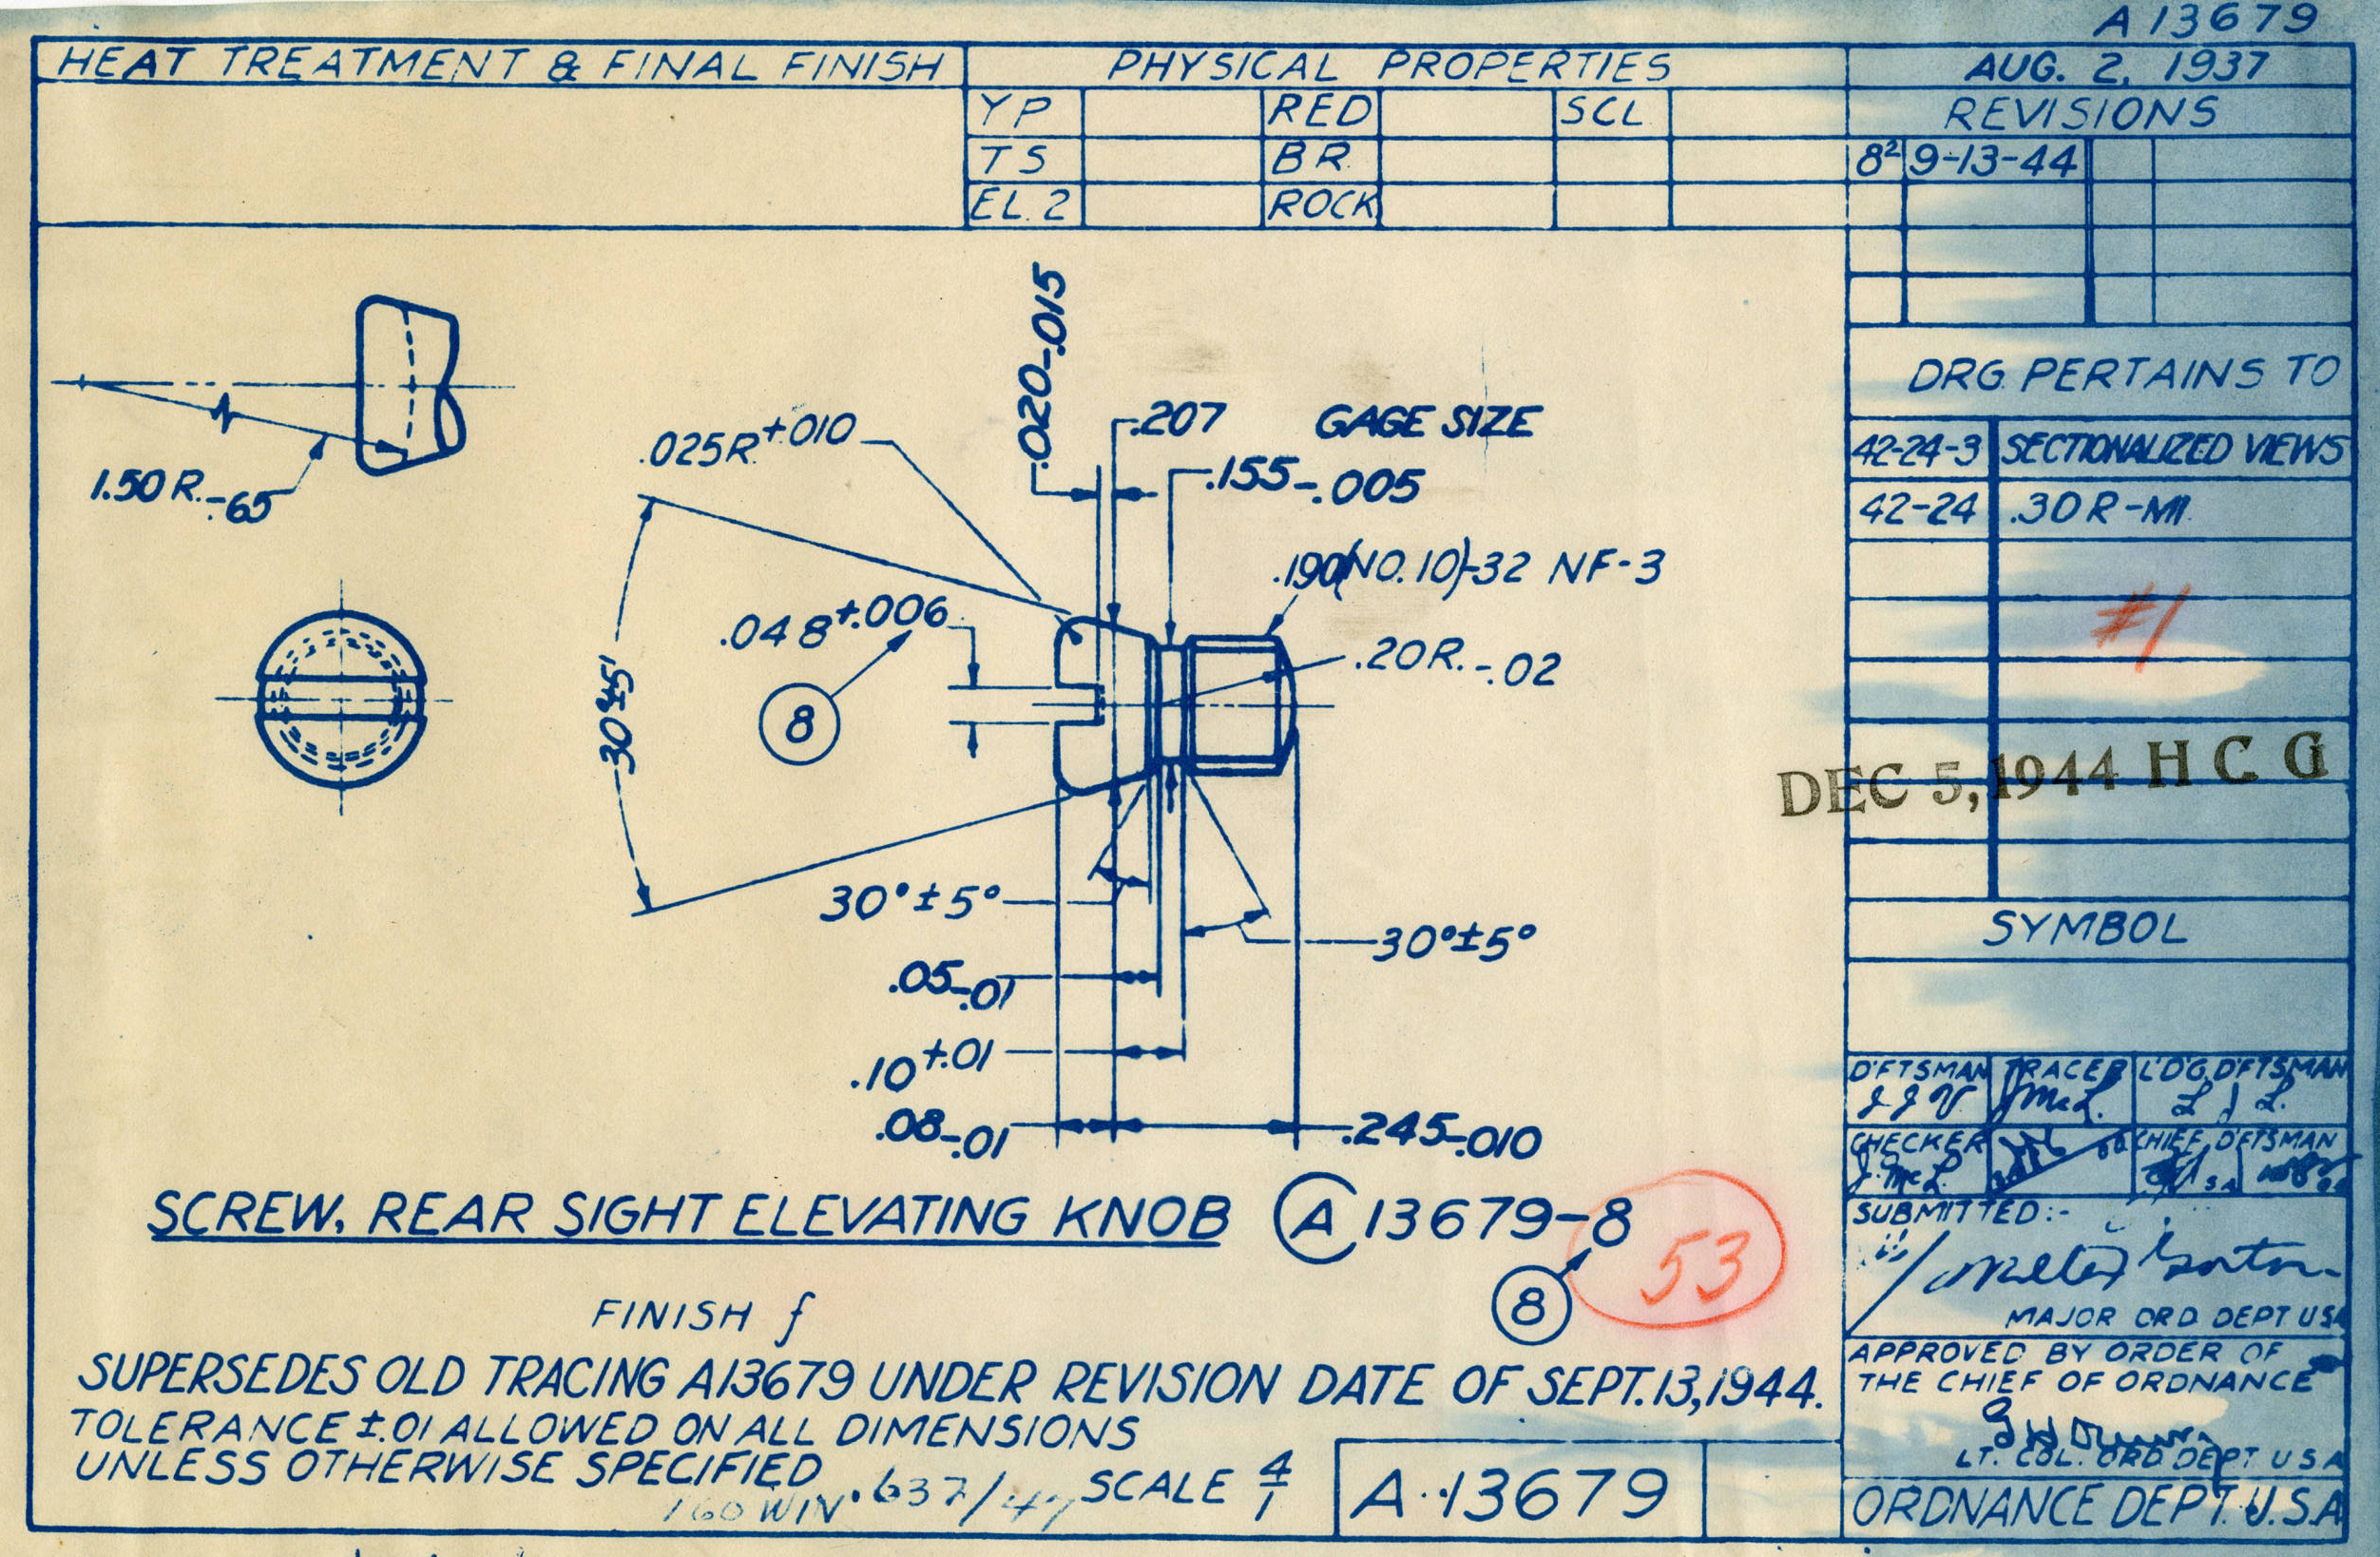 A 13679
HEAT TREATMENT & FINAL FINISH
PHYSICAL PROPERTIES
AUG. 2, 1937
YP RED SCL
REVISIONS
TS BR.
8² 9-13-44
EL. 2 ROCK
DRG. PERTAINS TO
42-24-3 SECTIONALIZED VIEWS
42-24 .30 R-M1
#1
DEC 5, 1944 H C G
SYMBOL
.020-.015
.207 GAGE SIZE
.025R.+.010
.155-.005
1.50 R.-.65
.190(NO. 10)-32 NF-3
.048+.006
.20R.-.02
8
30°±5°
30°±5°
.05-.01
.10+.01
.08-.01
.245-.010
SCREW, REAR SIGHT ELEVATING KNOB A 13679-8
53
8
FINISH f
SUPERSEDES OLD TRACING A13679 UNDER REVISION DATE OF SEPT. 13, 1944.
TOLERANCE ±.01 ALLOWED ON ALL DIMENSIONS
UNLESS OTHERWISE SPECIFIED
160 WIN .637/47
SCALE 4/1
A-13679
D'FTSMAN TRACER L'D'G. D'FTSMAN
J J V. J McL. L J L.
CHECKER CHIEF D'FTSMAN
J. McL.
SUBMITTED:-
MAJOR ORD. DEPT USA
APPROVED BY ORDER OF
THE CHIEF OF ORDNANCE
LT. COL. ORD. DEPT. U S A
ORDNANCE DEPT. U.S.A.